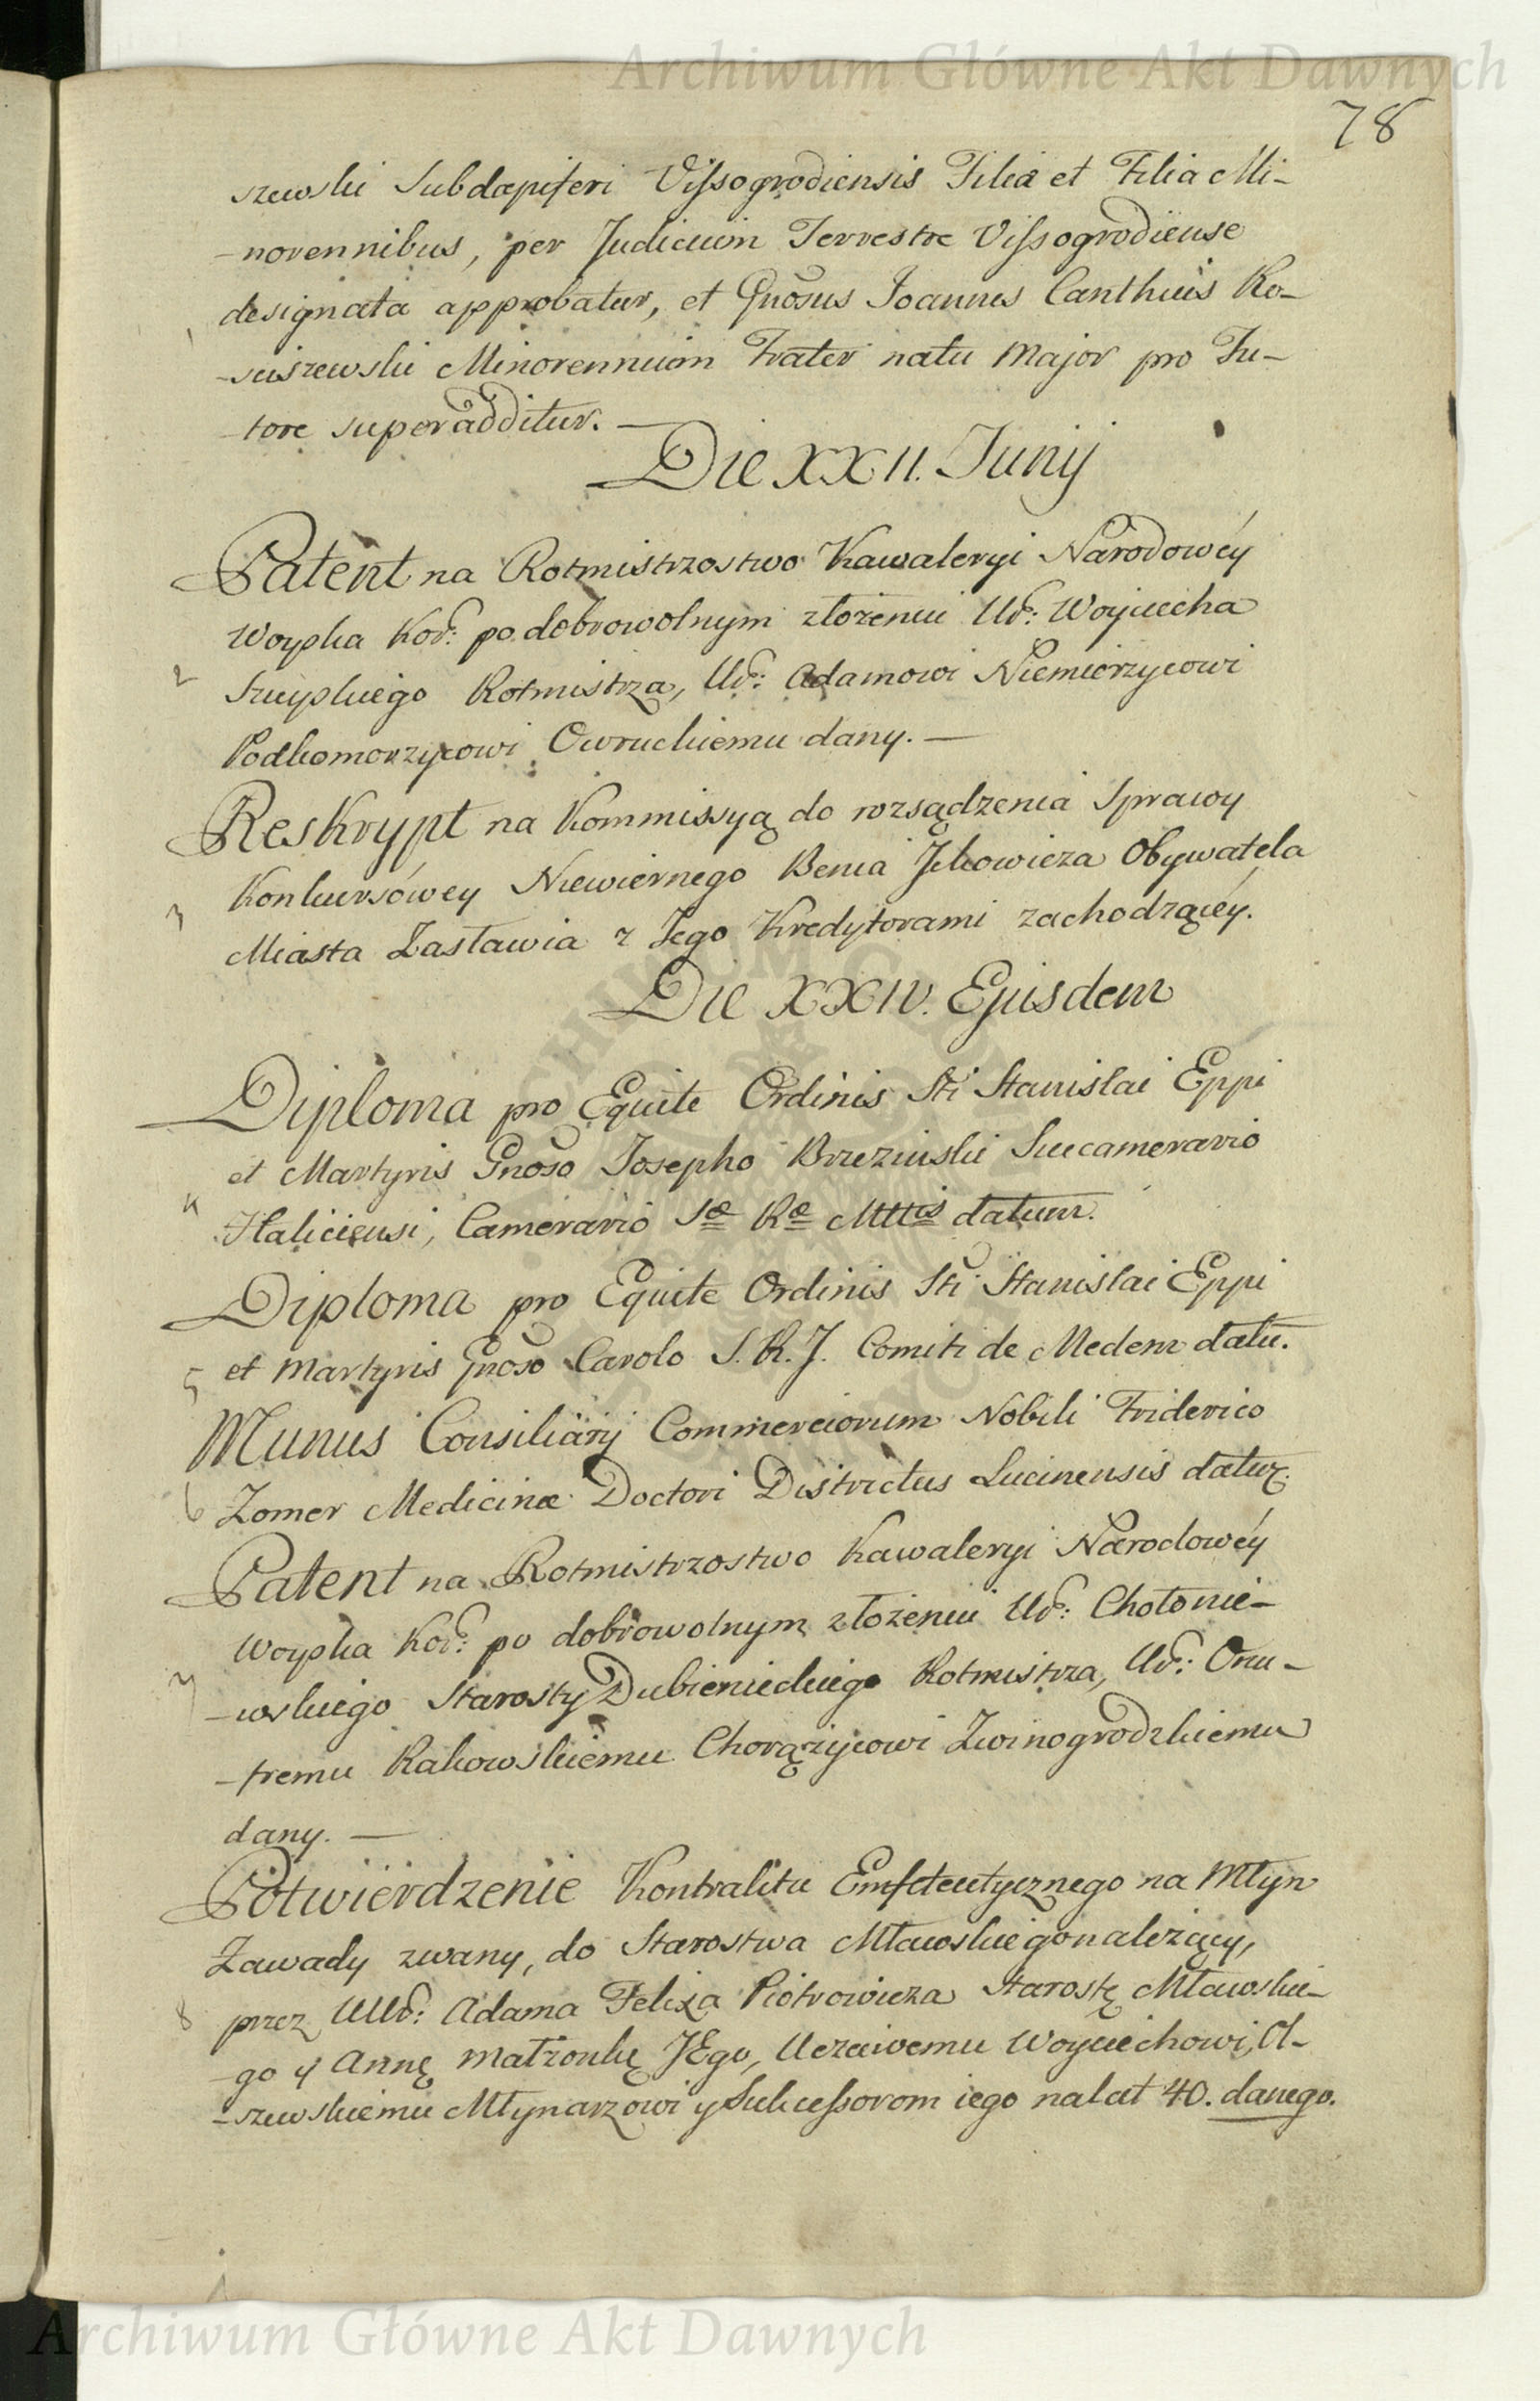 Archiwum Główne Akt Dawnych
78
szewski Subdapiferi Vissogrodiensis Filiæ et Filia Mi-
-norennibus, per Judicium Terrestre Vissogrodiense
designata approbatur, et Gnõsus Joannes Canthius Ko-
1
-sciszewski Minorennium Frater natu Major pro Tu-
-tore superadditur. —
Die XXII. Junij
Patent na Rotmistrzostwo Kawaleryi Narodowéy
Woyska Kor: po dobrowolnym złożeniu Ur: Woyciecha
2
Szuyskiego Rotmistrza, Ur: Adamowi Niemierzycowi
Podkomorzycowi Owruckiemu dany. —
Reskrypt na Kommissyą do rozsądzenia Sprawy
Konkursówey Niewiernego Benia Jckowicza Obywatela
3
Miasta Zasławia z Jego Kredytorami zachodzącéy.
Die XXIV. Ejusdem
Diploma pro Equite Ordinis Sti Stanislai Eppi
et Martyris Gnõso Josepho Brzezinski Succamerario
4
Haliciensi, Camerario Sæ Ræ Mttis datum.
Diploma pro Equite Ordinis Sti Stanislai Eppi
5 et Martyris Gnõso Carolo S. R. J. Comiti de Medem datū.
Munus Consiliarÿ Commerciorum Nobili Friderico
6 Zomer Medicinæ Doctori Districtus Lucinensis datur.
Patent na Rotmistrzostwo Kawaleryi Narodowéy
Woyska Kor: po dobrowolnym złożeniu Ur: Chołonie-
7
-wskiego Starosty Dubienieckiego Rotmistrza, Ur: Onu-
-fremu Rakowskiemu Chorążycowi Zwinogrodzkiemu
dany. —
Potwierdzenie Kontraktu Emfiteutycznego na Młyn
Zawady zwany, do Starostwa Mławskiego należący,
8 przez WUr: Adama Felixa Piotrowicza Starostę Mławskie-
-go y Annę Małżonkę JEgo, Uczciwemu Woyciechowi Ol-
-szewskiemu Młynarzowi y Sukcessorom iego na lat 40. danego.
Archiwum Główne Akt Dawnych